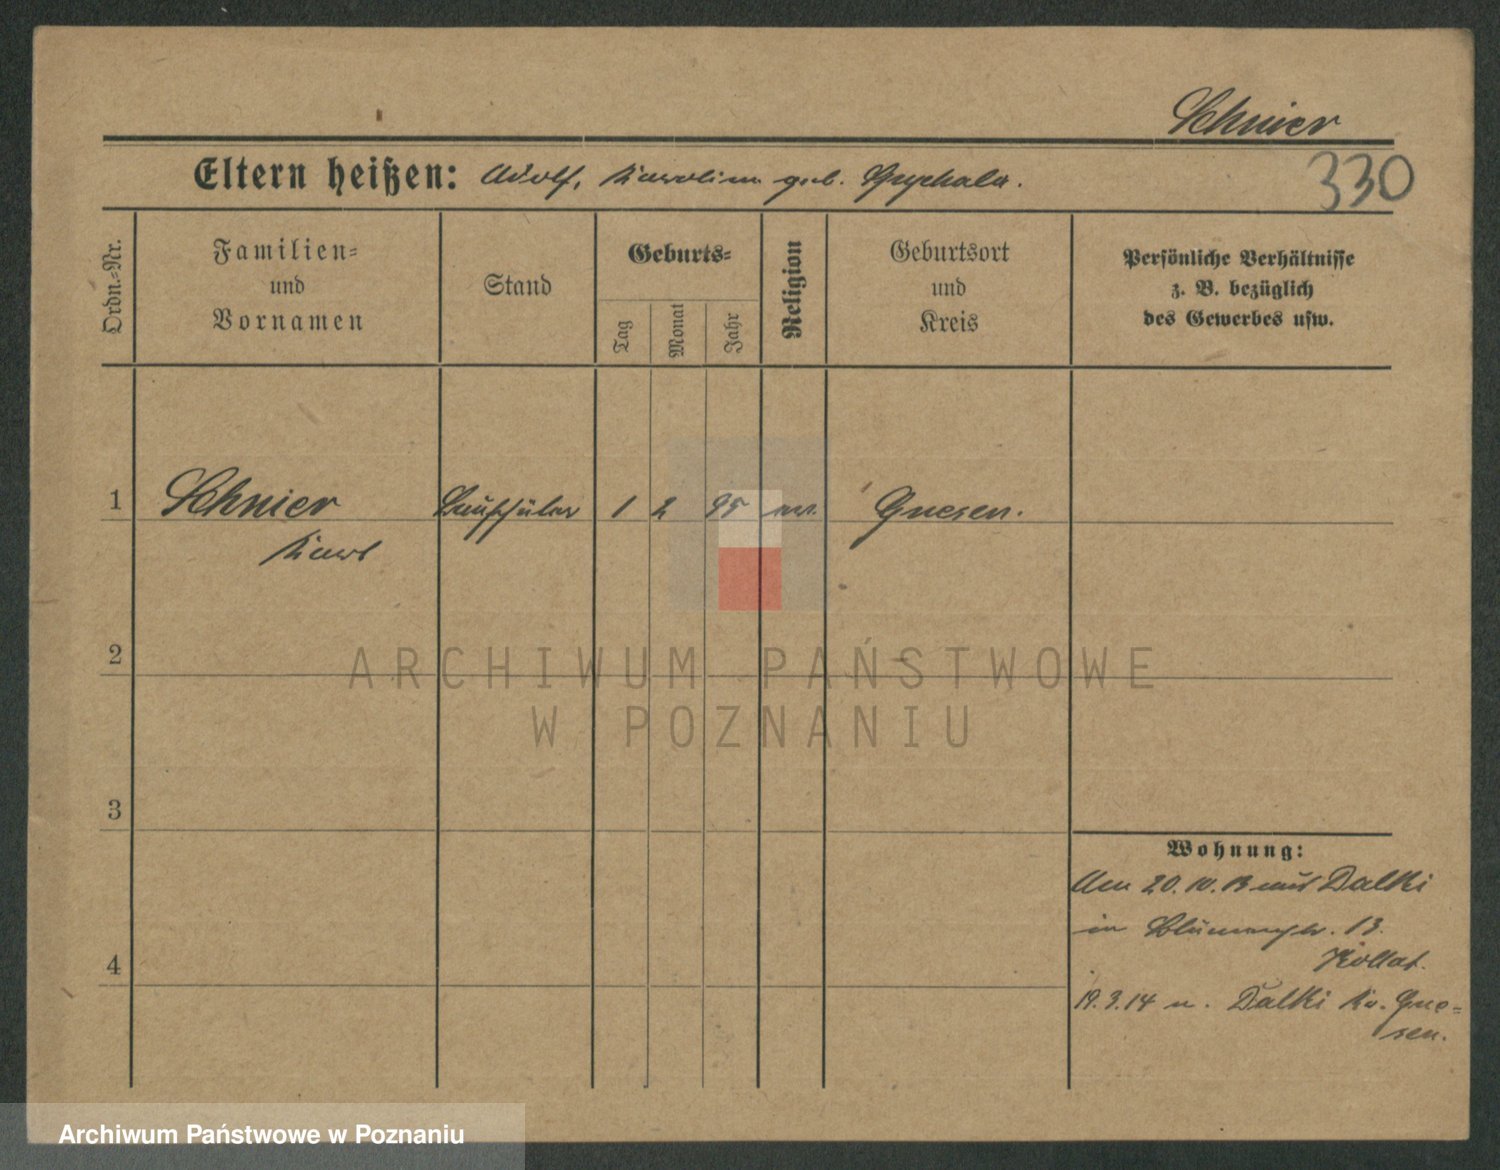 Schnier
Eltern heißen: Adolf, Karolina geb.
330
Ordn.-Nr.
Familien-
und
Vornamen
Stand
Geburts-
Tag
Monat
Jahr
Religion
Geburtsort
und
Kreis
Persönliche Verhältnisse
z. B. bezüglich
des Gewerbes usw.
1 Schnier 1 2 95 ev. Gnesen.
Karl
2
ARCHIWUM PAŃSTWOWE
W POZNANIU
3
Wohnung:
Am 20.10.13 aus Dalki
in 13.
4
Kollat.
19.3.14 n. Dalki Kr. Gne-
sen.
Archiwum Państwowe w Poznaniu